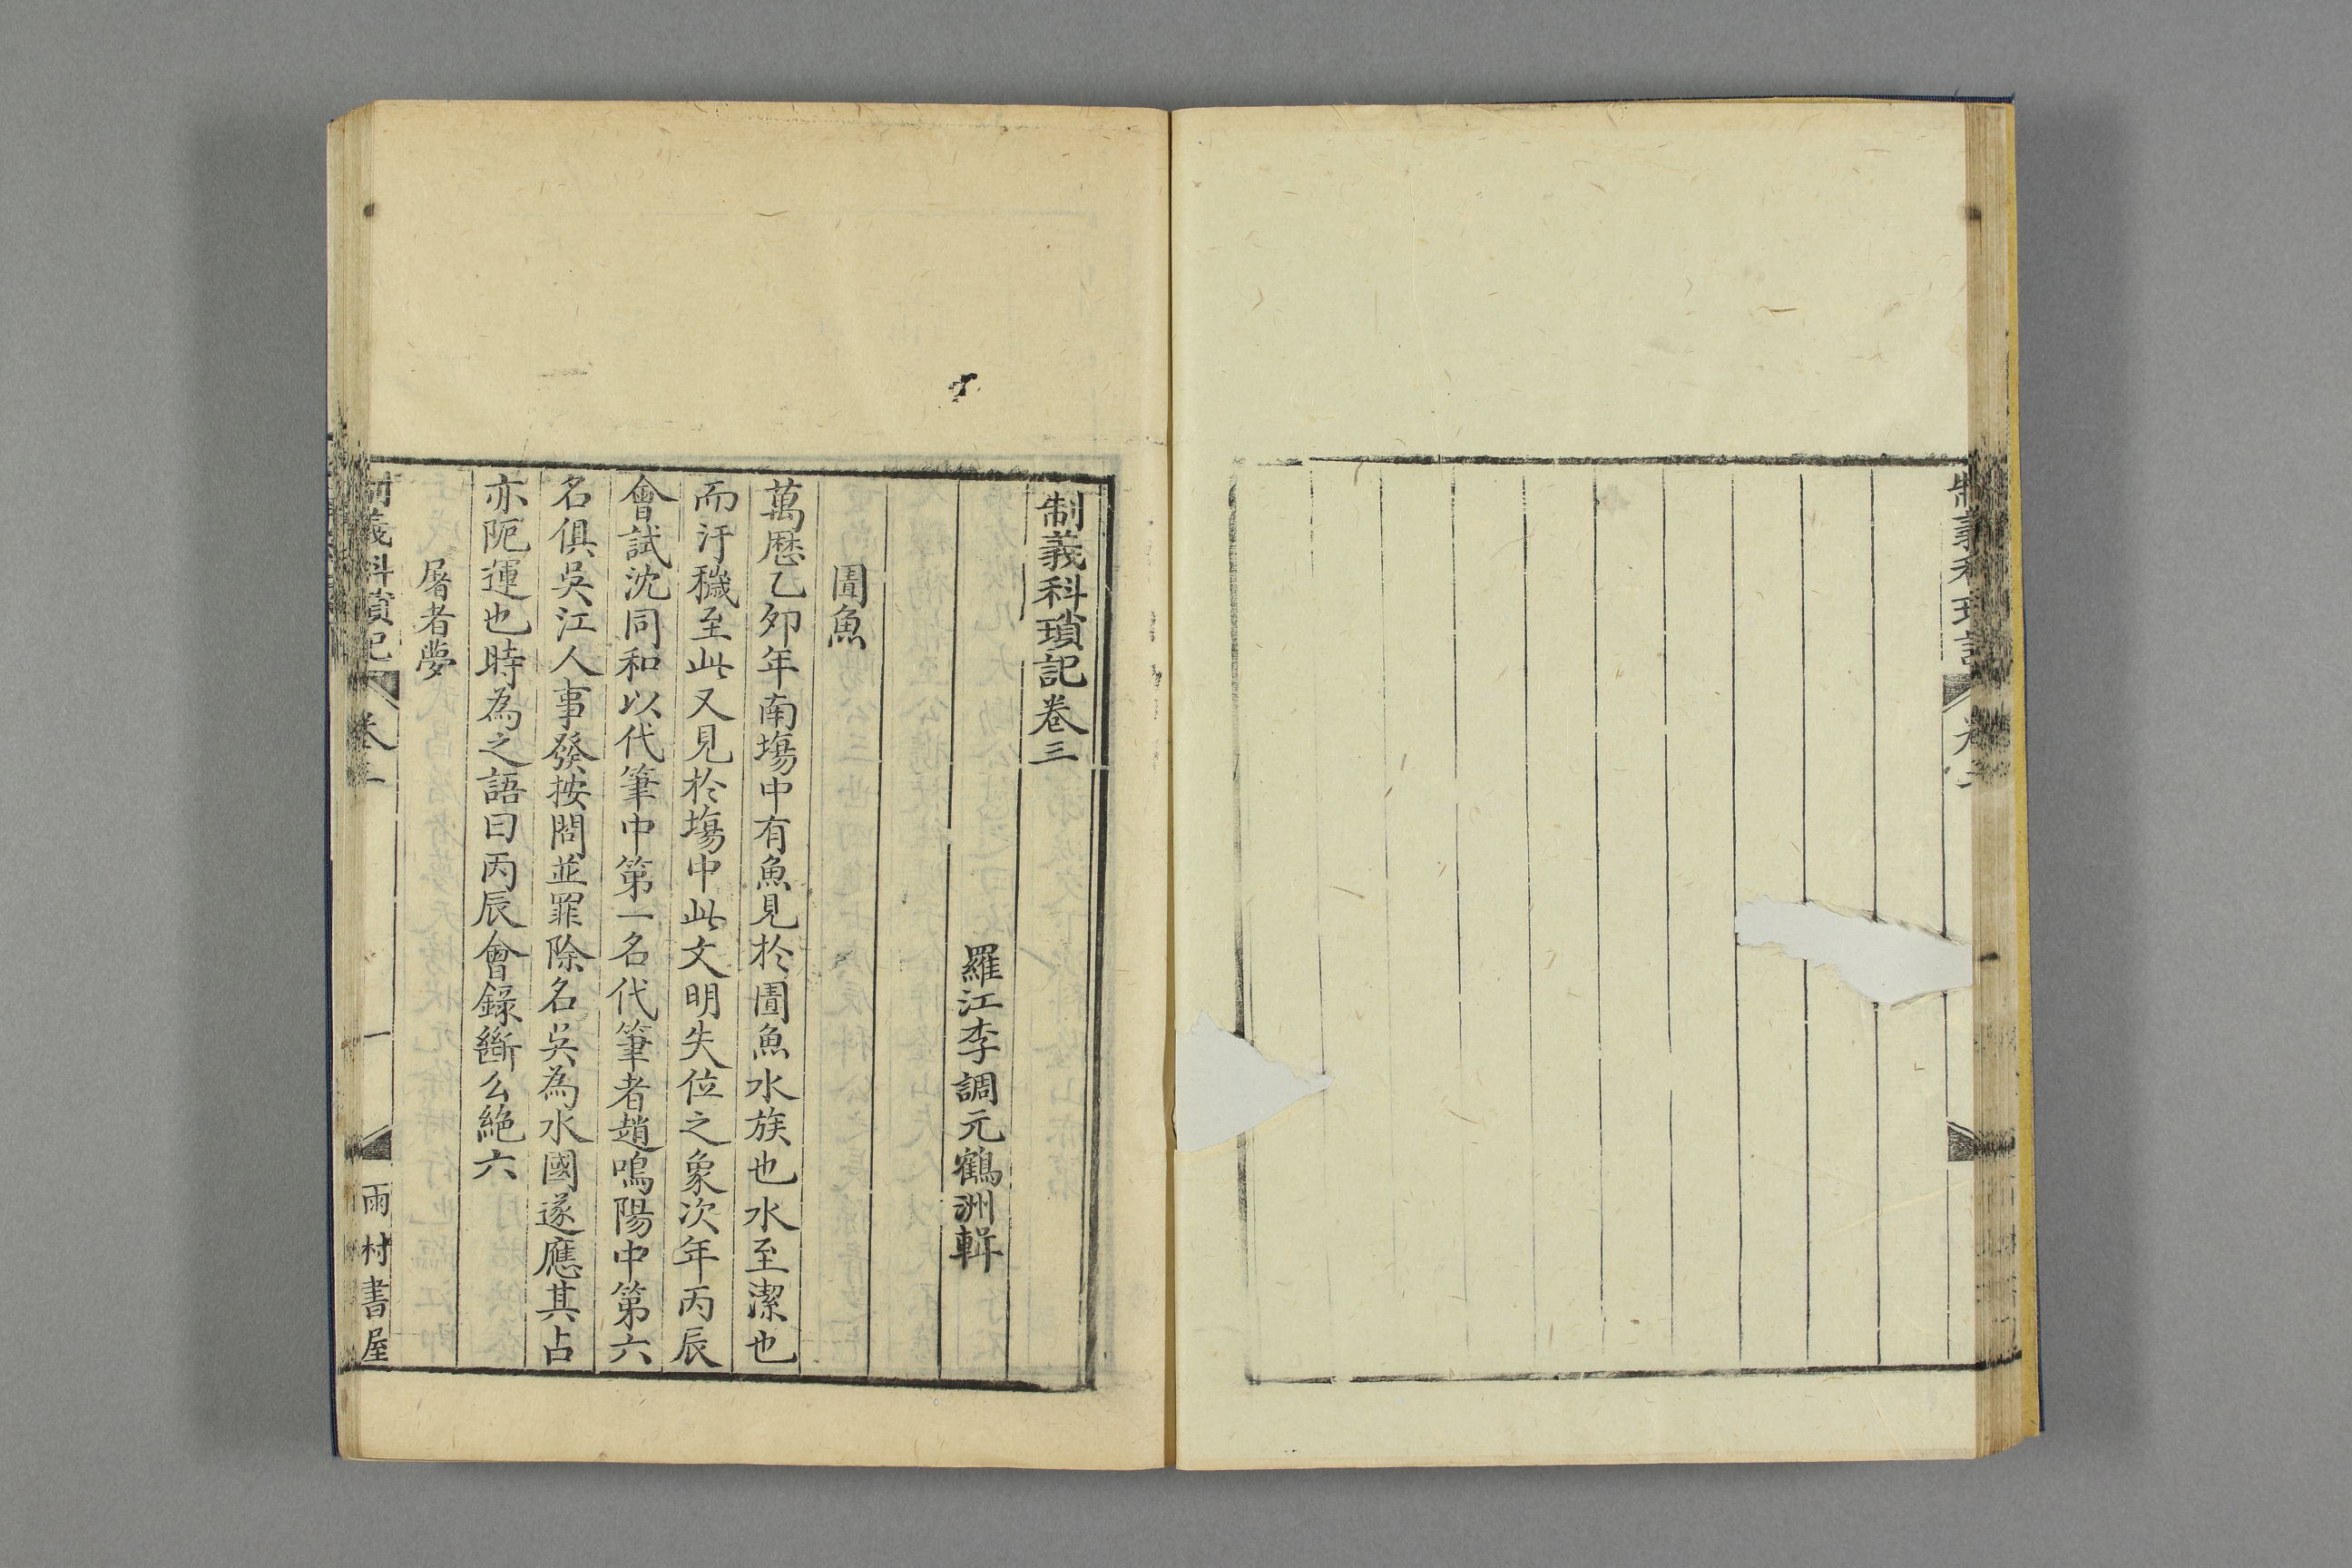 制義科瑣記卷三
羅江李調元鶴洲輯
圊魚
萬歷乙夘年南塲中有魚見於圊魚水族也水至潔也
而汙穢至此又見於塲中此文明失位之象次年丙辰
會試沈同和以代筆中第一名代筆者趙鳴陽中第六
名俱吳江人事發按問並罪除名吳為水國遂應其占
亦阨運也時為之語曰丙辰會錄斷么絶六
屠者夢
制義科瑣記
卷三
一
雨村書屋